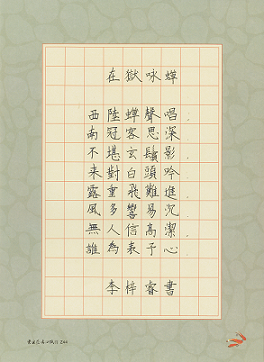 在獄咏蟬
西陸蟬聲唱
南冠客思深
不堪玄鬢影
來對白頭吟
露重飛難進
風多響易沉
無人信高潔
誰為表予心
李梓睿書